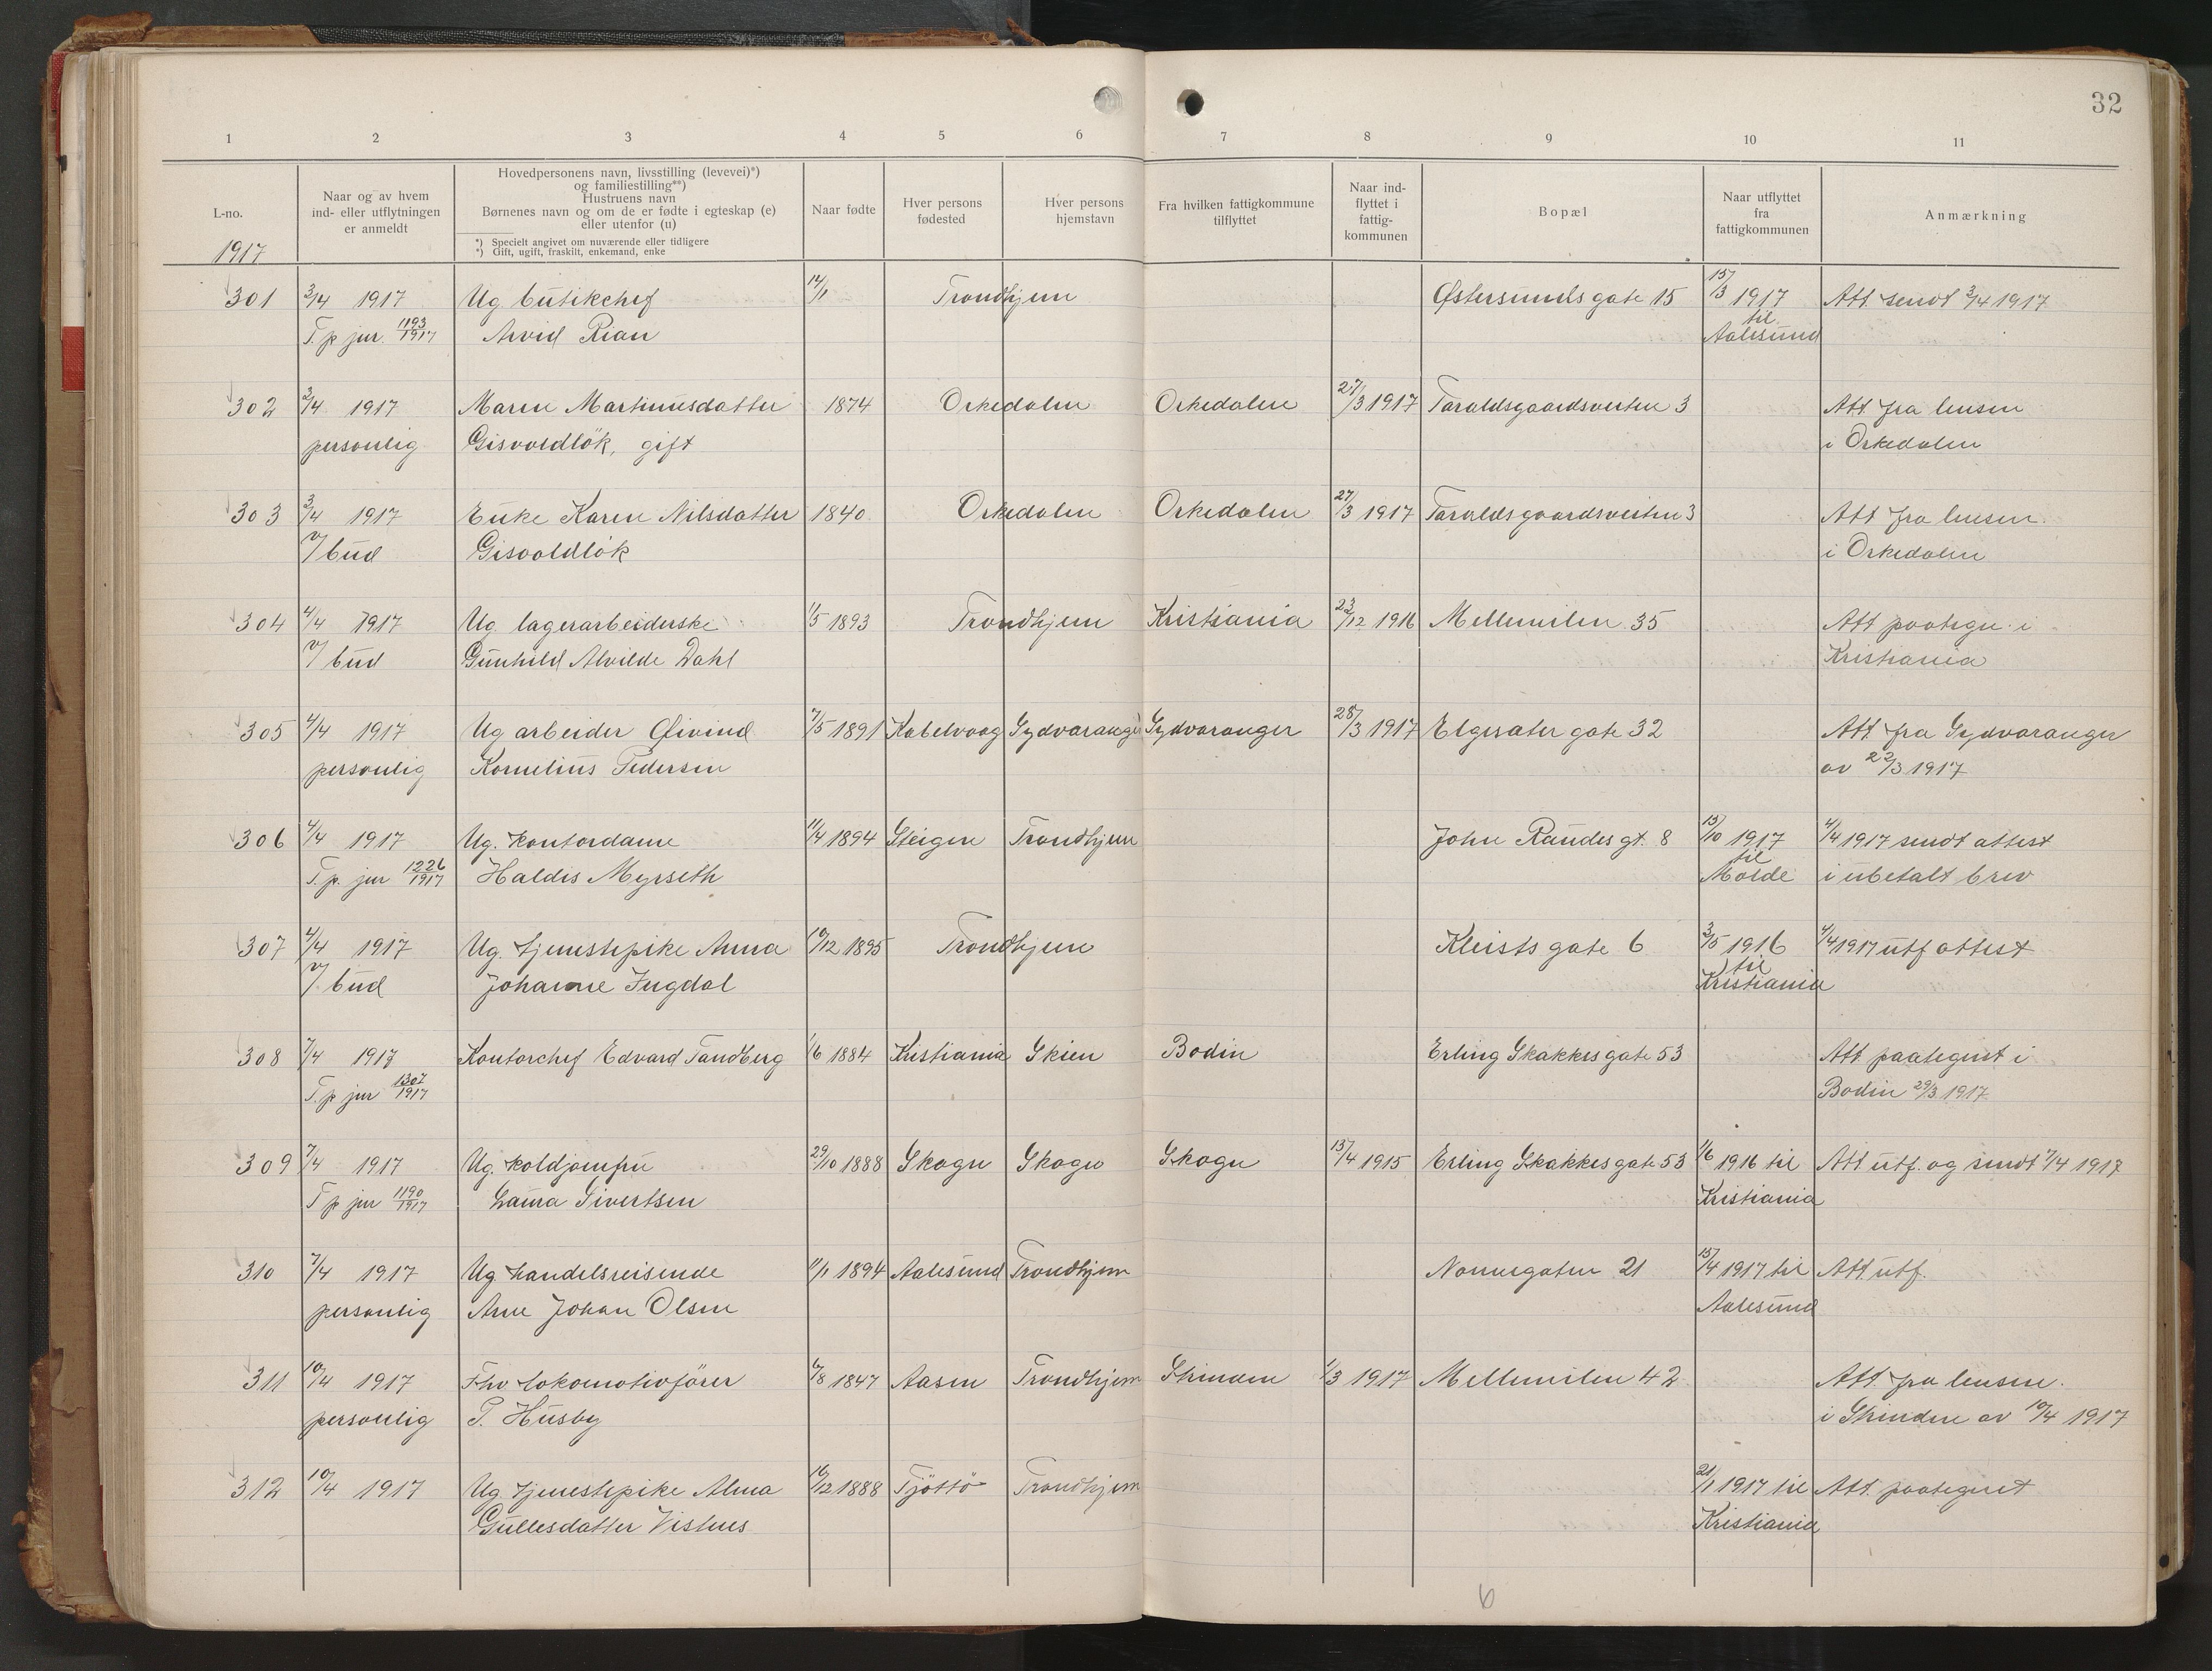 32
1 2 3 4 5 6 7 8 9 10 11
L-no.
1917
Naar og av hvem
ind- eller utflytningen
er anmeldt
Hovedpersonens navn, livsstilling (levevei)*)
og familiestilling**)
Hustruens navn
Børnenes navn og om de er fødte i egteskap (e)
eller utenfor (u)
*) Specielt angivet om nuværende eller tidligere
*) Gift, ugift, fraskilt, enkemand, enke
Naar fødte
Hver persons
fødested
Hver persons
hjemstavn
Fra hvilken fattigkommune
tilflyttet
Naar ind-
flyttet i
fattig-
kommunen
Bopæl
Naar utflyttet
fra
fattigkommunen
Anmærkning
301 3/4 1917 Ug butikchef 14/1 Trondhjem Østersunds gate 15 15/3 1917 Att sendt 3/4 1917
T. p jur. 1193/1917 Arvid Rian til Aalesund
302 3/4 1917 Maren Martinusdatter 1874 Orkedalen Orkedalen 27/3 1917 Taraldsgaardsveiten 3 Att fra lensm
personlig Gisvoldløk, gift i Orkedalen
303 3/4 1917 Enke Karen Nilsdatter 1840 Orkedalen Orkedalen 27/3 1917 Taraldsgaardsveiten 3 Att fra lensm
v/ bud Gisvoldløk i Orkedalen
304 4/4 1917 Ug. lagerarbeiderske 1/5 1893 Trondhjem Kristiania 23/12 1916 Mellemilen 35 Att paategn. i
v/ bud Gunhild Alvilde Dahl Kristiania
305 4/4 1917 Ug arbeider Øivind 7/5 1891 Kabelvaag Sydvaranger Sydvaranger 28/3 1917 Elgesæter gate 32 Att fra Sydvaranger
personlig Kornelius Pedersen av 22/3 1917
306 4/4 1917 Ug. kontordame 11/4 1894 Steigen Trondhjem John Raudes gt. 8 15/10 1917 4/4 1917 sendt attest
T. p. jur 1226/1917 Haldis Myrseth til Molde i ubetalt brev
307 4/4 1917 Ug. tjenestepike Anna 10/12 1895 Trondhjem Kleists gate 6 3/5 1916 4/4 1917 utf attest
v/ bud Johanne Ingdal til Kristiania
308 7/4 1917 Kontorchef Edvard Tandberg 1/6 1884 Kristiania Skien Bodin Erling Skakkes gate 53 Att paategnet i
T. p jur 1307/1917 Bodin 29/3 1917
309 7/4 1917 Ug. koldjomfru 29/10 1888 Skogn Skogn Skogn 13/4 1915 Erling Skakkes gate 53 1/6 1916 til Att utf. og sendt 7/4 1917
T p jur 1190/1917 Laura Sivertsen Kristiania
310 7/4 1917 Ug handelsreisende 1/1 1894 Aalesund Trondhjem Nonnegaten 21 15/4 1917 til Att utf.
personlig Arne Johan Olsen Aalesund
311 10/4 1917 Fhv lokomotivfører 6/8 1847 Aasen Trondhjem Strinden 1/3 1917 Mellemilen 42 Att fra lensm.
personlig P. Husby i Strinden av 10/4 1917
312 10/4 1917 Ug tjenestepike Alma 10/12 1888 Tjöttö Trondhjem 21/1 1917 til Att paategnet
Gullesdatter Vistnes Kristiania
6